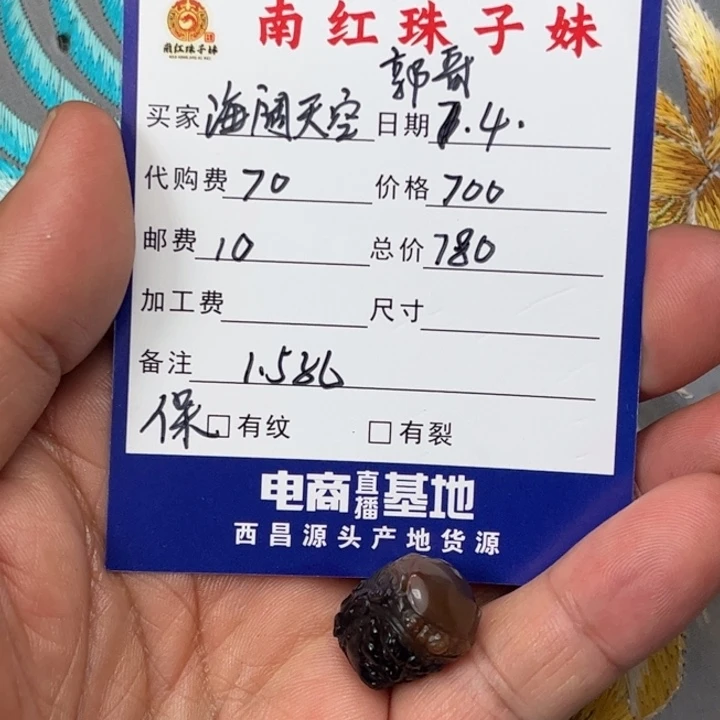 南红珠子妹
南红珠子妹
郭哥
买家 海阔天空 日期 7.4.
代购费 70 价格 700
邮费 10 总价 780
加工费 尺寸
备注
保 □有纹 □有裂
电商直播基地
西昌源头产地货源